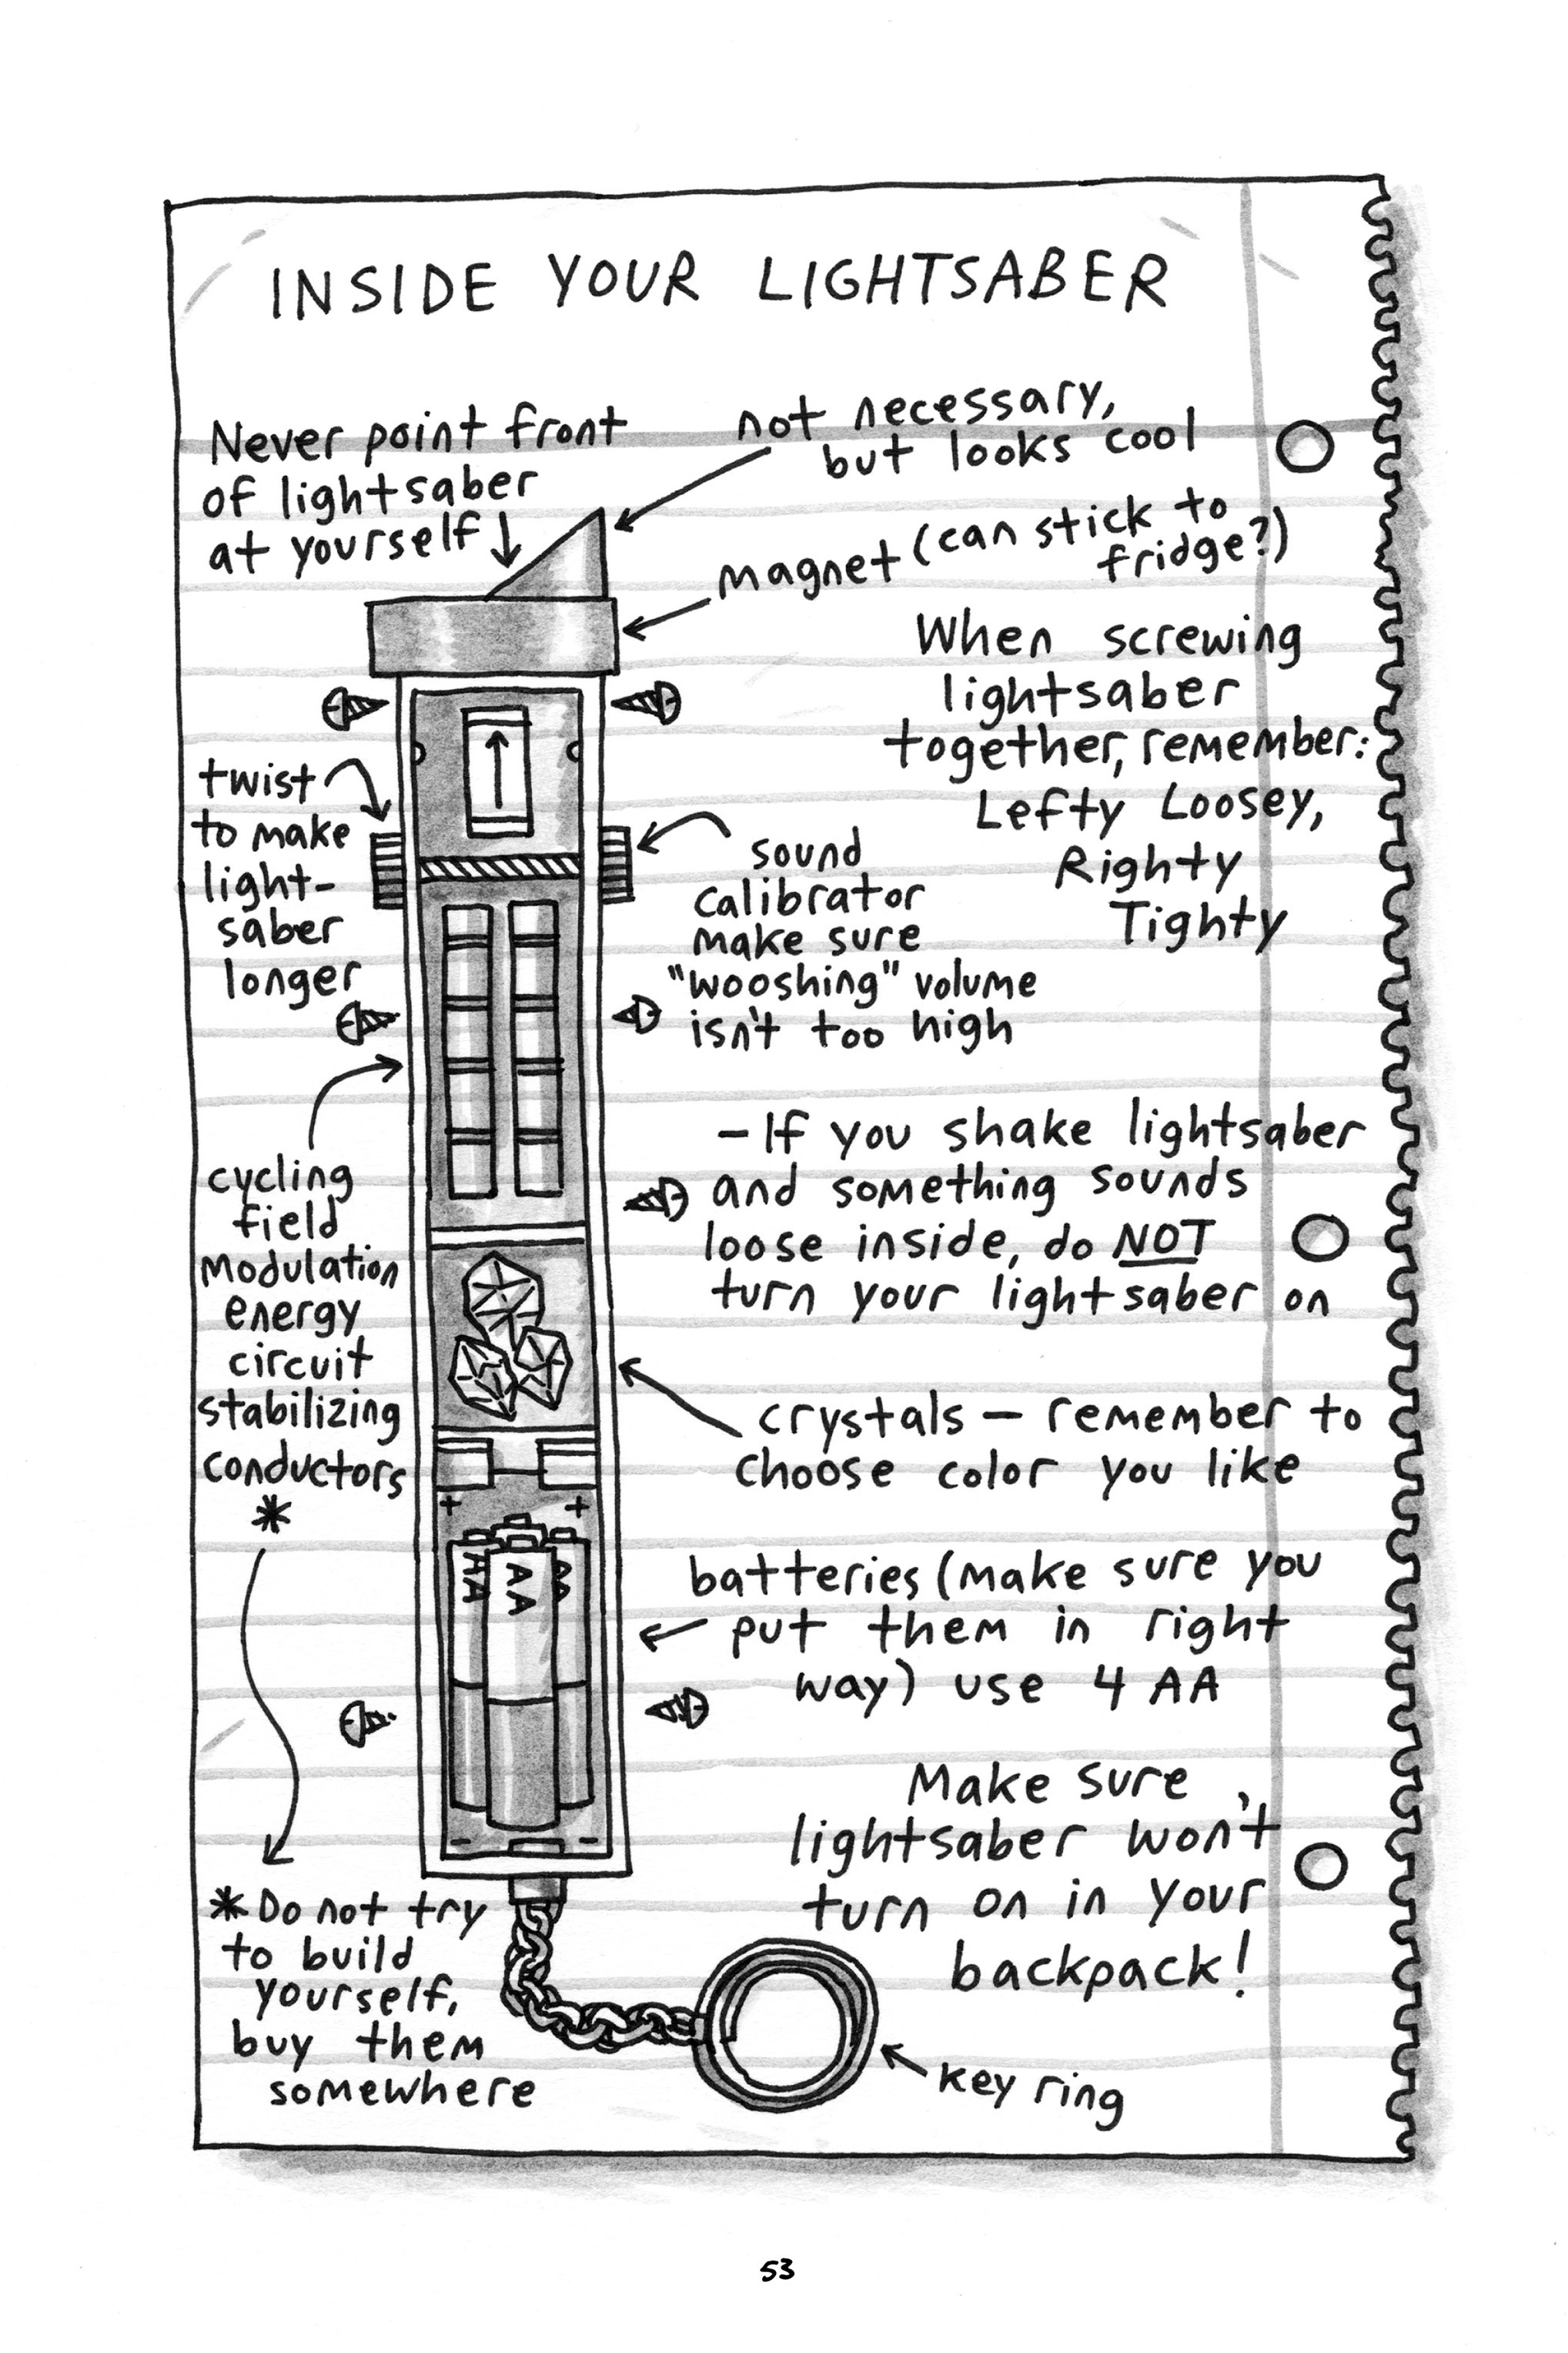 INSIDE YOUR LIGHTSABER
Never point front
of lightsaber
at yourself
not necessary,
but looks cool
magnet (can stick to
fridge?)
When screwing
lightsaber
together, remember:
Lefty Loosey,
Righty
Tighty
twist
to make
light-
saber
longer
sound
calibrator
make sure
"wooshing" volume
isn't too high
cycling
field
modulation
energy
circuit
stabilizing
conductors
*
- If you shake lightsaber
and something sounds
loose inside, do NOT
turn your lightsaber on
crystals – remember to
choose color you like
+ +
AA AA AA
batteries (make sure you
put them in right
way) use 4 AA
- -
Make sure
lightsaber won't
turn on in your
backpack!
* Do not try
to build
yourself,
buy them
somewhere
key ring
53